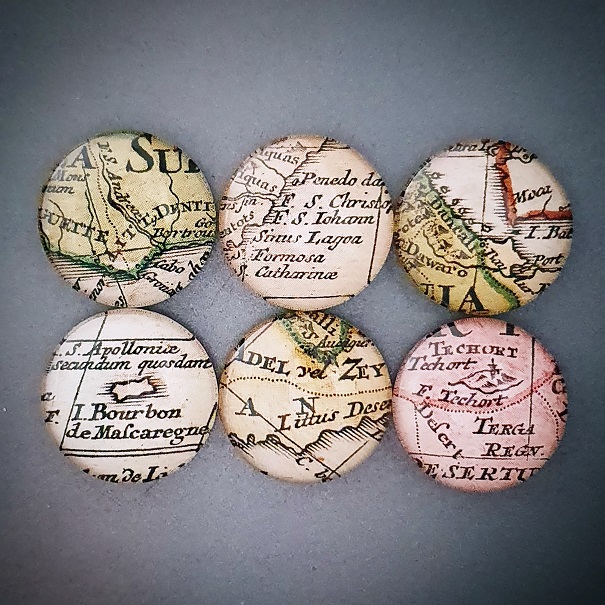 A
SUL
Mons
UGUETTE
DENTI
Cabo
quas
Aquas
Penedo da
F. S. Christo
F. S. Iohann
Sinus Lagoa
Formosa
S. Catharinæ
Moca
I. Bab
Dancali
Dawaro
Port
IA
S. Apolloniæ
secundum quosdam
I. Bourbon
de Mascaregne
F.
ADEL vel ZEY
A N
Littus Deser
C. b
TECHORT
Techort
F. Techort
Desert
TERGA
REGN.
ESERTU